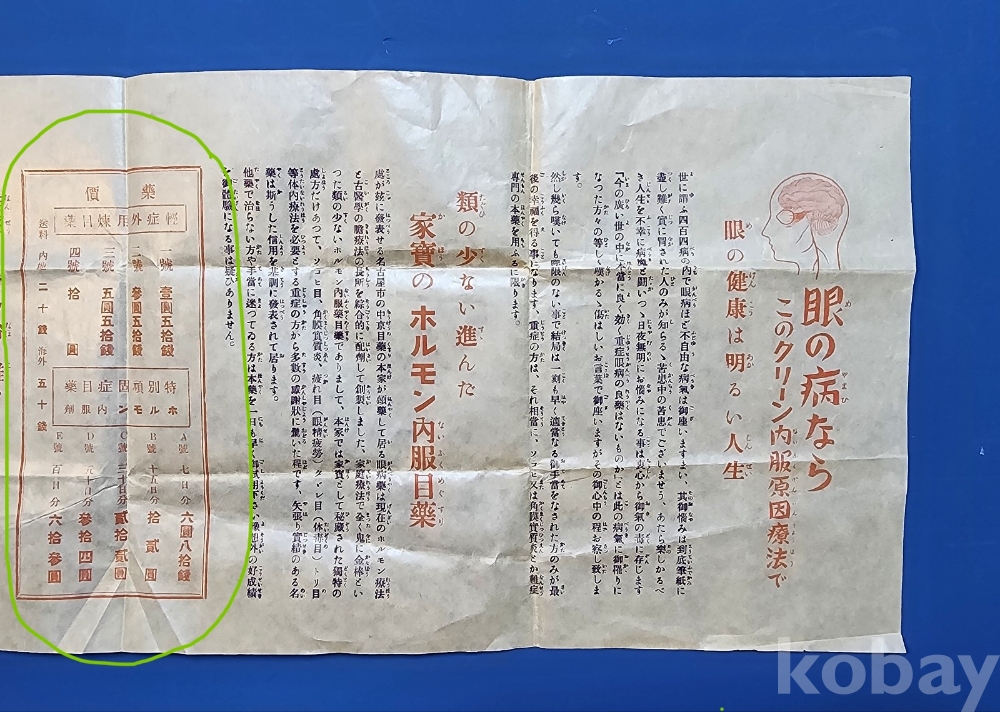 眼の病なら
このクリーン内服原因療法で
眼の健康は明るい人生
世に謂ふ四百四病の内で眼病ほど不自由な病氣は御座いますまい、其御惱みは到底筆紙に
盡し難く實に冒された人のみが知るゝ苦患中の苦患でございませう、あたら樂しかるべ
き人生を不幸に病魔と闘いつゝ日夜無明にお惱みになる事は衷心から御氣の毒に存じます
『今の廣い世の中に本當に良く効く重症眼病の良藥はないものか』とは此の病氣に御罹りに
なつた方々の等しく嘆かるゝ傷はしいお言葉で御座いますがその御心中の程お察し致しま
す。
然し幾ら嘆いても際限のない事で結局は一刻も早く適當なる御手當をなされた方のみが最
後の幸福を得る事になります、重症の方は、それ相當に、ソコヒ又は角膜實質炎とか難症
専門の本藥を用ふるに限ります。
類の少ない進んだ
家寶のホルモン內服目藥
處が玆に發表せる名古屋市の中京目藥の本家が頒藥して居る眼病藥は現在のホルモン療法
と古醫學の贍療法の長所を綜合的に配劑して創製しました、家庭療法で全く鬼に金棒とい
つた類の少ないホルモン內服藥目藥でありまして、本家では家寶として秘藏された獨特の
處方だけあつて、ソコヒ目、角膜實質炎、疲れ目(眼精疲勞)タヾレ目(体毒目)トリ目
等体内療法を必要とする重症の方から多數の感謝狀に驚いた程です、矢張り實績のある名
藥は斯うした信用を非訓に發表されて居ります。
他藥で治らない方や手當に迷つてゐる方は本藥を一日も早く御用下さい豫外の好成績
を御體驗になる事は疑ひありません。
藥價
輕症外用煉目藥
一號 壹圓五拾錢
二號 參圓五拾錢
三號 五圓五拾錢
四號 拾圓
送料 內地 二十錢 海外 五十錢
特別頑固症目藥
ホルモン內服劑
A號 七日分 六圓八拾錢
B號 十五日分 拾貳圓
C號 三十日分 貳拾貳圓
D號 五十日分 參拾四圓
E號 百日分 六拾參圓
kobay